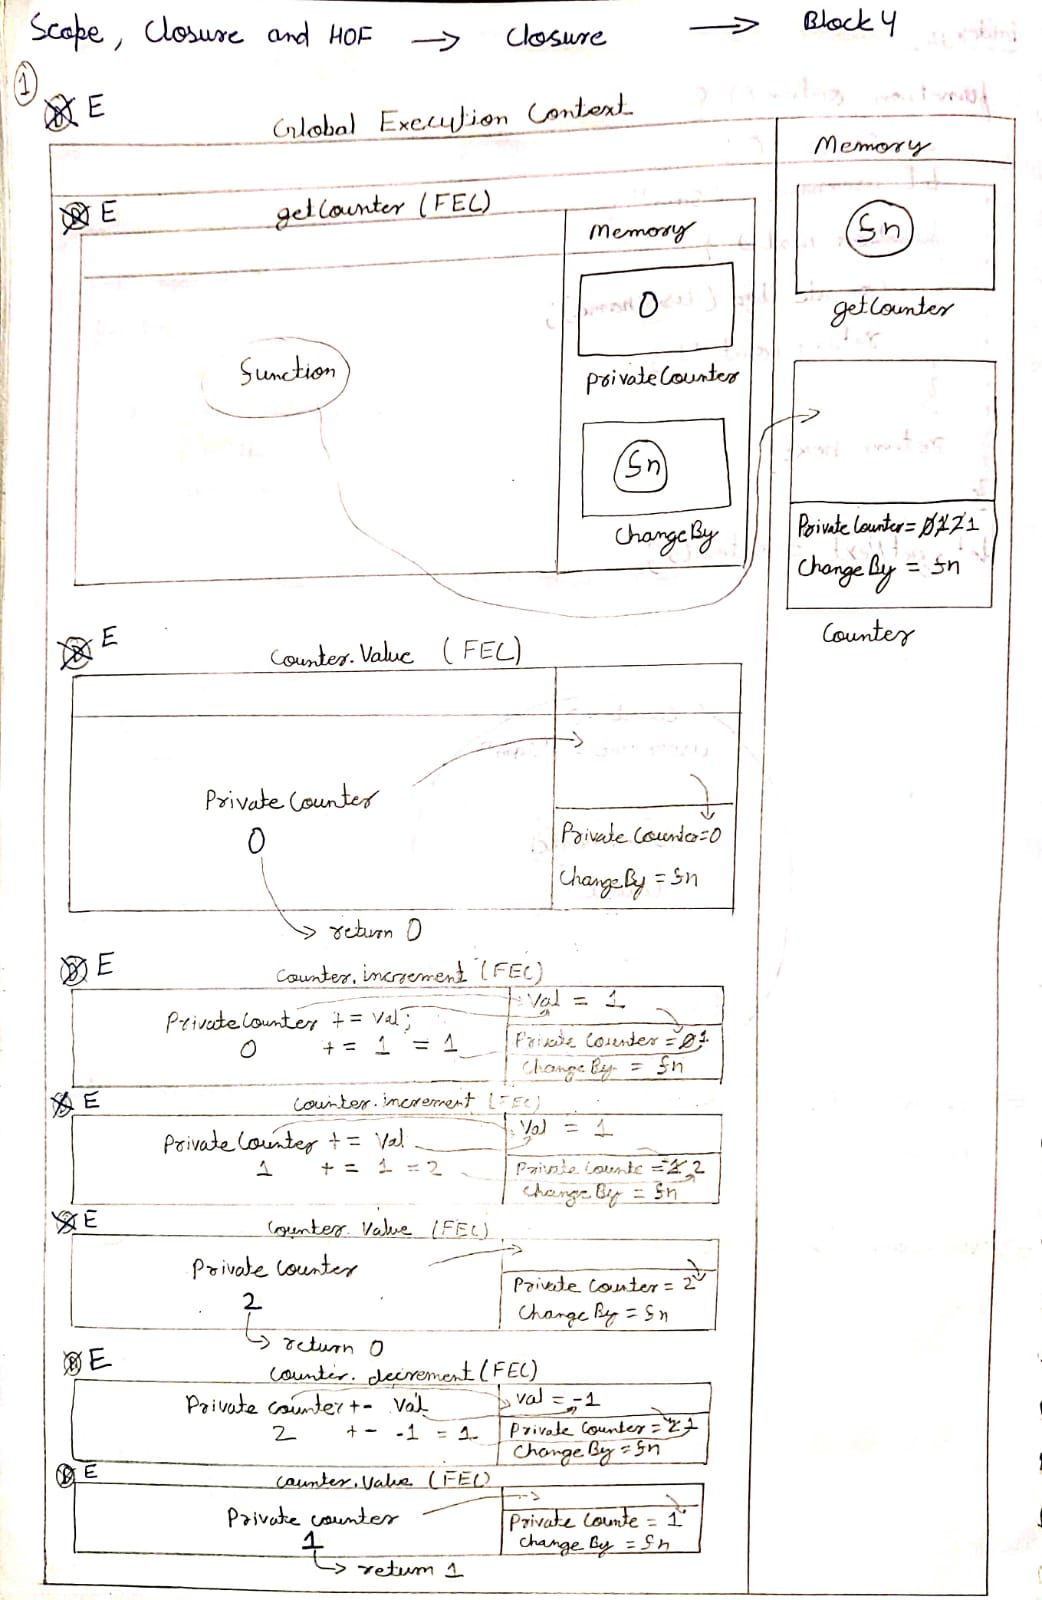 Scope, Closure and HOF → Closure → Block 4
1
D E
Global Execution Context
Memory
D E
getCounter (FEC)
Memory
fn
getCounter
0
privateCounter
function
fn
ChangeBy
Private Counter = 0 1 2 1
Change By = fn
Counter
D E
Counter. Value (FEC)
Private Counter
0
Private Counter=0
ChangeBy = fn
→ return 0
D E
Counter. increment (FEC)
Val = 1
PrivateCounter += val;
0 += 1 = 1
Private Counter = 0 1
Change By = fn
D E
Counter. increment (FEC)
Val = 1
Private Counter += Val
1 += 1 = 2
Private Counte = 1 2
Change By = fn
D E
Counter. Value (FEC)
Private Counter
2
Private Counter = 2
Change By = fn
→ return 0
D E
Counter. decrement (FEC)
val = -1
Private counter +- Val
2 +- -1 = 1
Private Counter = 2 1
Change By = fn
D E
Counter. Value (FEC)
Private counter
1
Private Counte = 1
Change By = fn
→ return 1